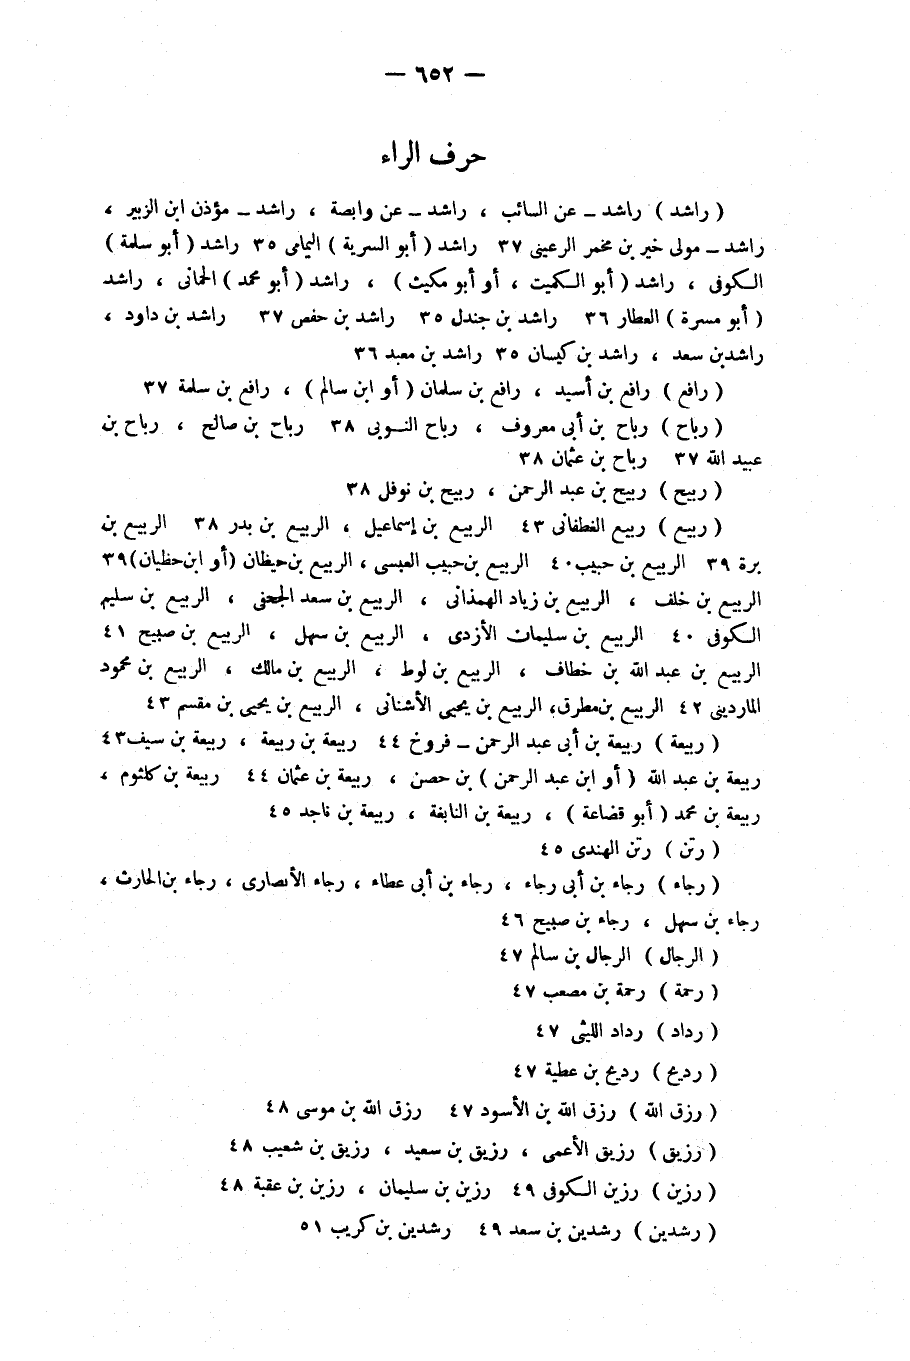 — ٦٥٢ —
حرف الراء
( راشد ) راشد ــ عن السائب ، راشد ــ عن وابصة ، راشد ــ مؤذن ابن الزبير ،
راشد ــ مولى خير بن مخمر الرعينى ٣٧ راشد ( أبو السرية ) اليمامى ٣٥ راشد ( أبو سلمة )
الكوفى ، راشد ( أبو الكميت ، أو أبو مكيث ) ، راشد ( أبو محمد ) الحمانى ، راشد
( أبو مسرة ) العطار ٣٦ راشد بن جندل ٣٥ راشد بن حفص ٣٧ راشد بن داود ،
راشد بن سعد ، راشد بن كيسان ٣٥ راشد بن معبد ٣٦
( رافع ) رافع بن أسيد ، رافع بن سلمان ( أو ابن سالم ) ، رافع بن سلمة ٣٧
( رباح ) رباح بن أبى معروف ، رباح النوبى ٣٨ رباح بن صالح ، رباح بن
عبيد الله ٣٧ رباح بن عثمان ٣٨
( ربيح ) ربيح بن عبد الرحمن ، ربيح بن نوفل ٣٨
( ربيع ) ربيع الغطفانى ٤٣ الربيع بن إسماعيل ، الربيع بن بدر ٣٨ الربيع بن
برة ٣٩ الربيع بن حبيب ٤٠ الربيع بن حبيب العبسى ، الربيع بن حيظان (أو ابن حظيان) ٣٩
الربيع بن خلف ، الربيع بن زياد الهمذانى ، الربيع بن سعد الجعفى ، الربيع بن سليم
الكوفى ٤٠ الربيع بن سليمان الأزدى ، الربيع بن سهل ، الربيع بن صبيح ٤١
الربيع بن عبد الله بن خطاف ، الربيع بن لوط ، الربيع بن مالك ، الربيع بن محمود
الماردينى ٤٢ الربيع بن مطرق، الربيع بن يحيى الأشنانى ، الربيع بن يحيى بن مقسم ٤٣
( ربيعة ) ربيعة بن أبى عبد الرحمن ــ فروخ ٤٤ ربيعة بن ربيعة ، ربيعة بن سيف ٤٣
ربيعة بن عبد الله ( أو ابن عبد الرحمن ) بن حصن ، ربيعة بن عثمان ٤٤ ربيعة بن كلثوم ،
ربيعة بن محمد ( أبو قضاعة ) ، ربيعة بن النابغة ، ربيعة بن ناجد ٤٥
( رتن ) رتن الهندى ٤٥
( رجاء ) رجاء بن أبى رجاء ، رجاء بن أبى عطاء ، رجاء الأنصارى ، رجاء بن الحارث ،
رجاء بن سهل ، رجاء بن صبيح ٤٦
( الرجال ) الرجال بن سالم ٤٧
( رحمة ) رحمة بن مصعب ٤٧
( رداد ) رداد الليثى ٤٧
( رديح ) رديح بن عطية ٤٧
( رزق الله ) رزق الله بن الأسود ٤٧ رزق الله بن موسى ٤٨
( رزيق ) رزيق الأعمى ، رزيق بن سعيد ، رزيق بن شعيب ٤٨
( رزين ) رزين الكوفى ٤٩ رزين بن سليمان ، رزين بن عقبة ٤٨
( رشدين ) رشدين بن سعد ٤٩ رشدين بن كريب ٥١